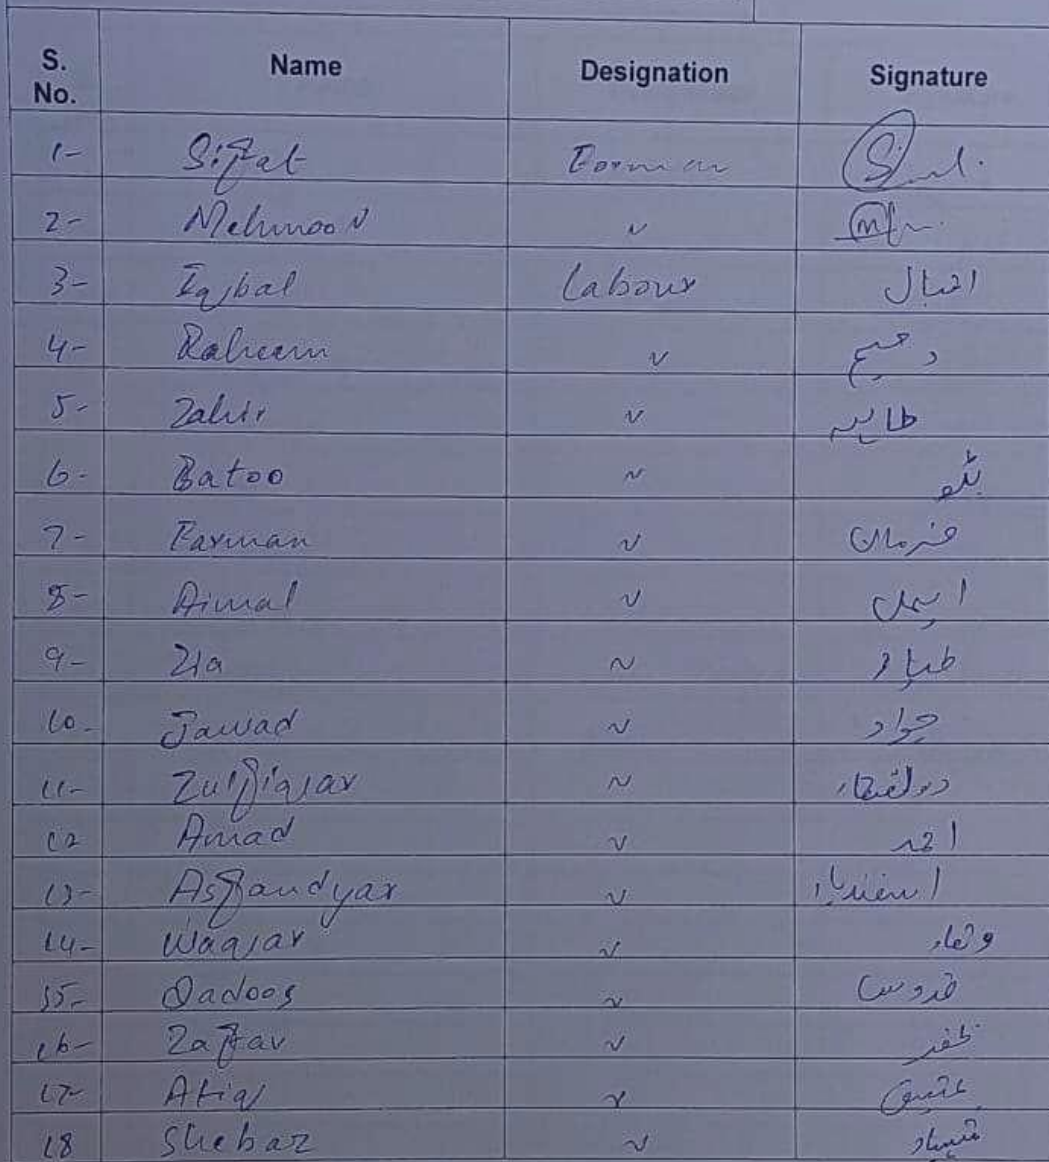 S. No. Name Designation Signature
1- Sifat Forman
2- Mehmood 〃
3- Iqbal Labour اقبال
4- Raheem 〃 رحیم
5- Zahir 〃
6- Batoo 〃 بٹو
7- Farman 〃 فرمان
8- Aimal 〃 ایمل
9- Zia 〃
10- Jawad 〃 جواد
11- Zulfiqar 〃 ذولفقار
12 Amad 〃 احمد
13- Asfandyar 〃 اسفندیار
14- Waqar 〃 وقار
15- Qadoos 〃 قدوس
16- Zafar 〃 ظفر
17- Atiq 〃 عتیق
18 Shebaz 〃